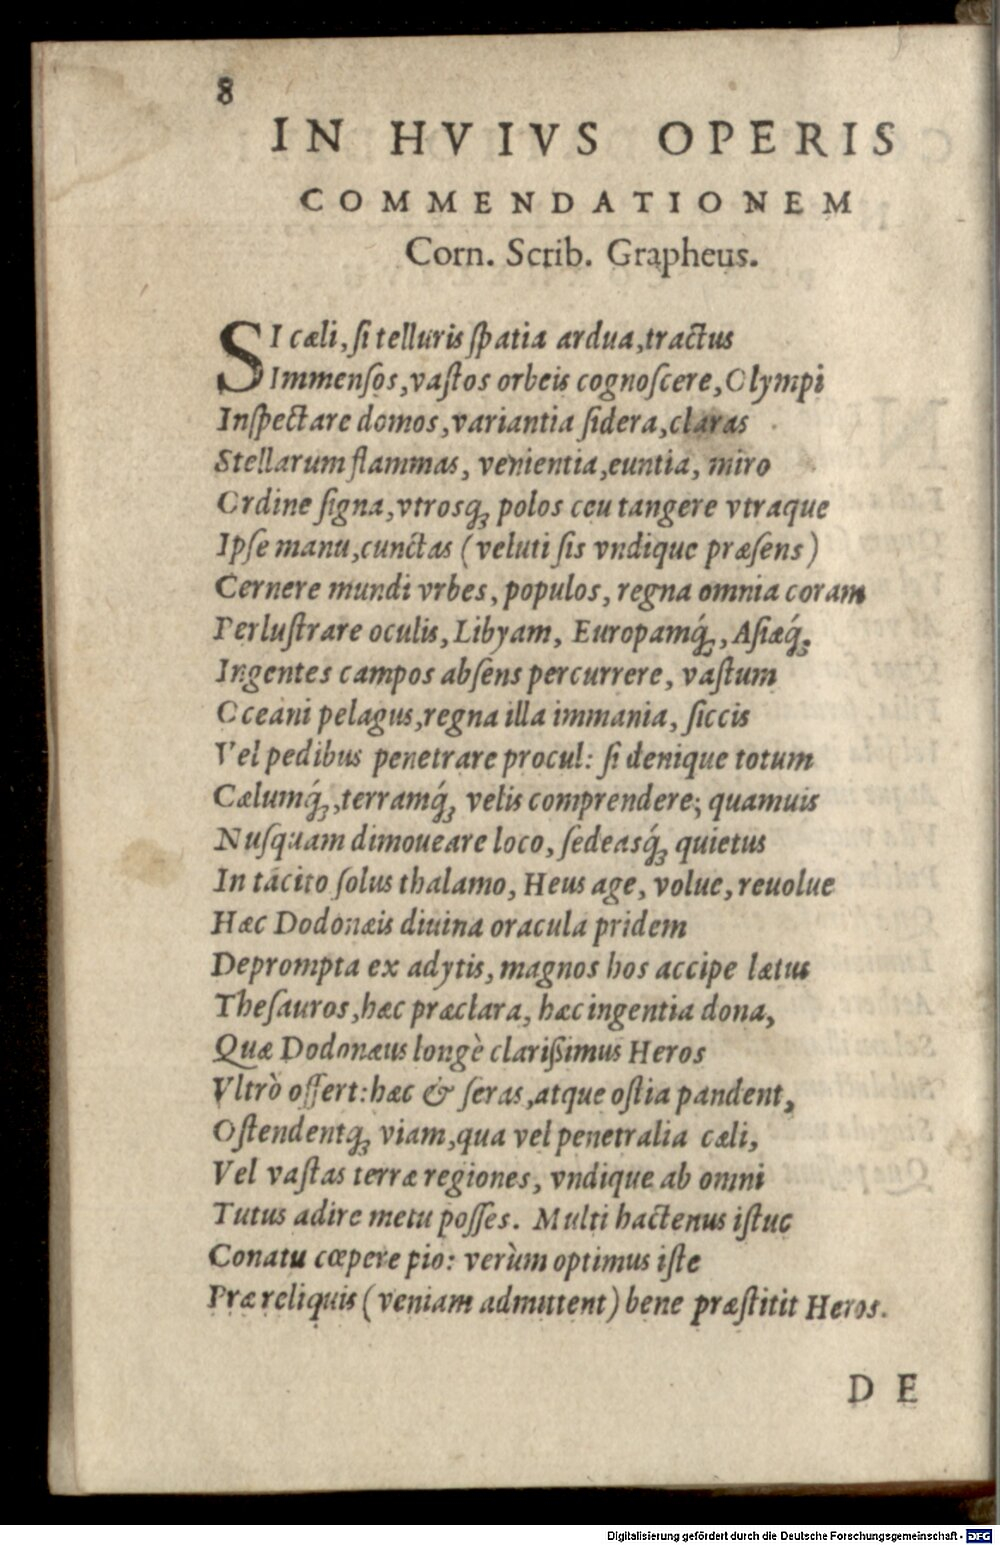 8
IN HVIVS OPERIS
COMMENDATIONEM
Corn. Scrib. Grapheus.
SI cæli, ſi telluris ſpatia ardua, tractus
Immenſos, vaſtos orbeis cognoſcere, Olympi
Inſpectare domos, variantia ſidera, claras
Stellarum flammas, venientia, euntia, miro
Ordine ſigna, vtrosq́ꝫ polos ceu tangere vtraque
Ipſe manu, cunctas (veluti ſis vndique præſens)
Cernere mundi vrbes, populos, regna omnia coram
Perluſtrare oculis, Libyam, Europamq́ꝫ, Aſiæq́ꝫ
Ingentes campos abſens percurrere, vaſtum
Oceani pelagus, regna illa immania, ſiccis
Vel pedibus penetrare procul: ſi denique totum
Cælumq́ꝫ, terramq́ꝫ velis comprendere; quamuis
Nuſquam dimoueare loco, ſedeasq́ꝫ quietus
In tacito ſolus thalamo, Heus age, volue, reuolue
Hæc Dodonæis diuina oracula pridem
Deprompta ex adytis, magnos hos accipe lætus
Theſauros, hæc præclara, hæc ingentia dona,
Quæ Dodonæus longè clarißimus Heros
Vltrò offert: hæc & ſeras, atque oſtia pandent,
Oſtendentqꝫ viam, qua vel penetralia cæli,
Vel vaſtas terræ regiones, vndique ab omni
Tutus adire metu poſſes. Multi hactenus iſtuc
Conatu cœpere pio: verùm optimus iſte
Præ reliquis (veniam admittent) bene præſtitit Heros.
DE
Digitalisierung gefördert durch die Deutsche Forschungsgemeinschaft - DFG